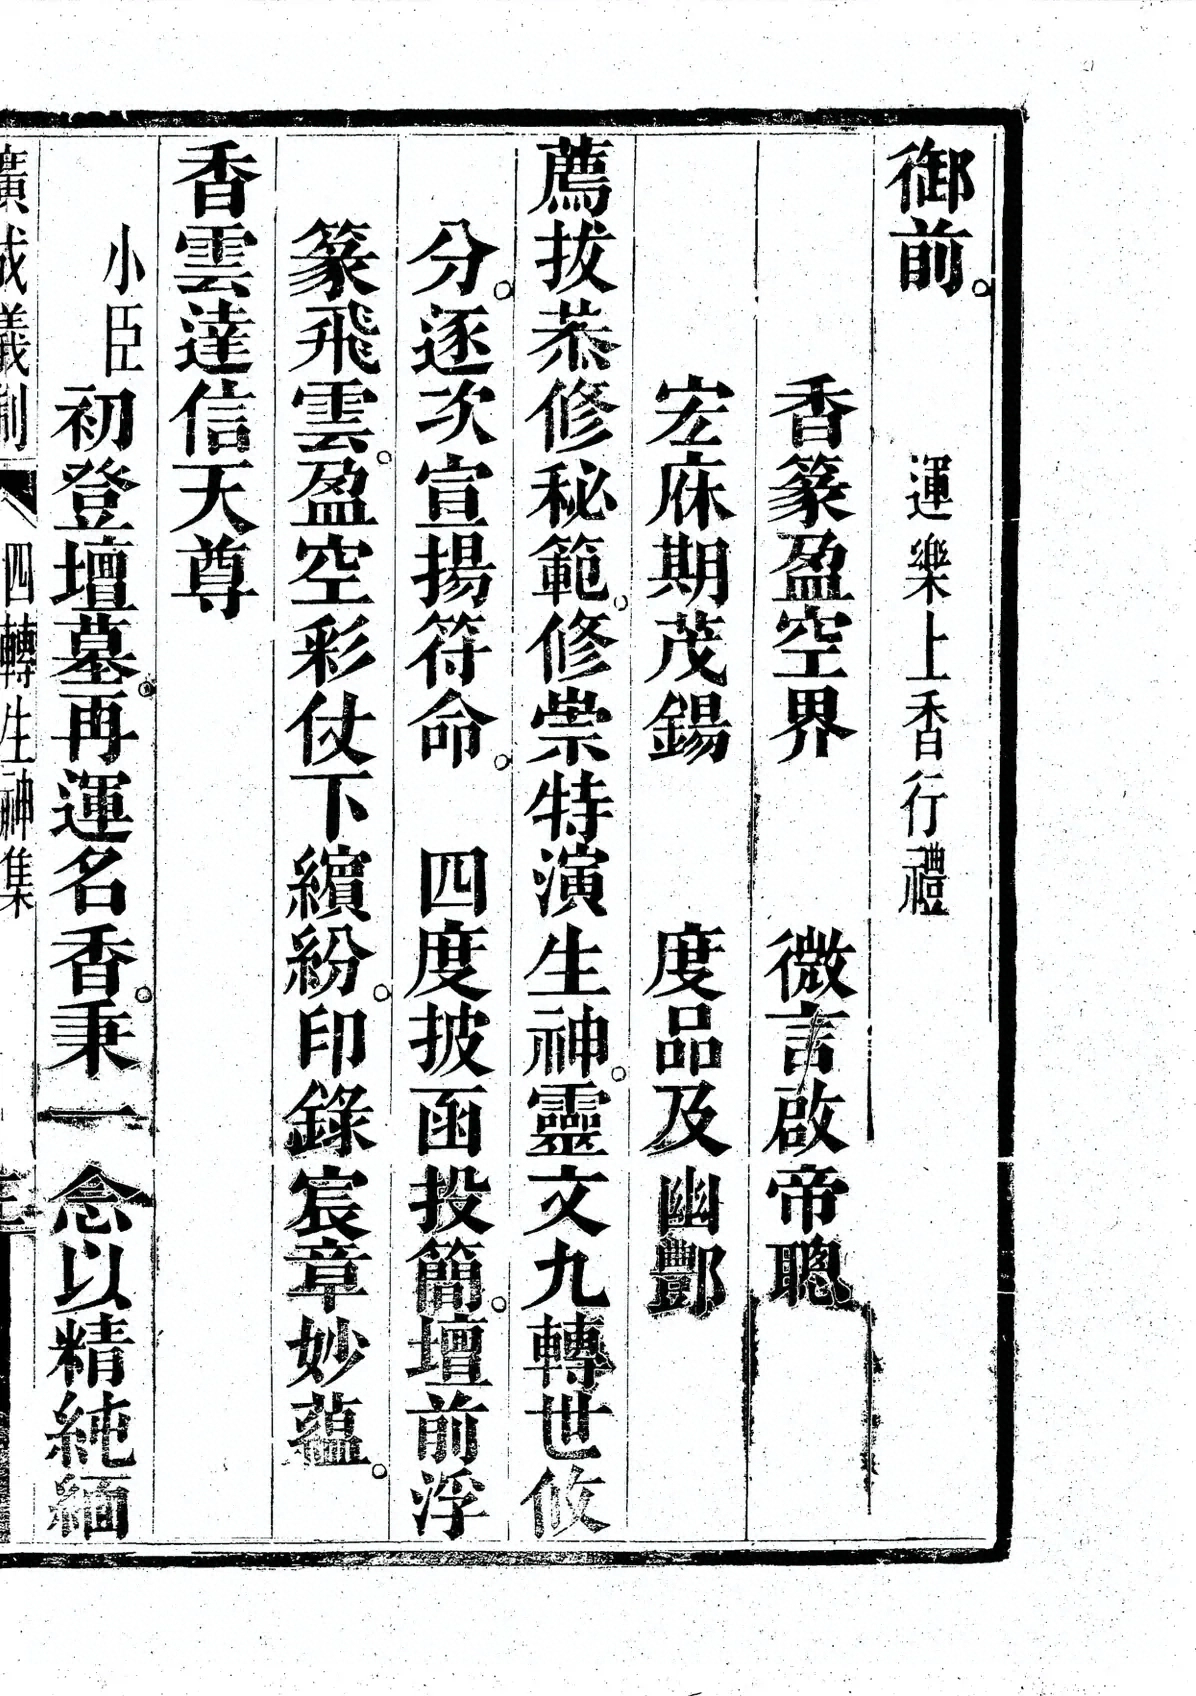 御前。　　運樂上香行禮
香篆盈空界　　微言啟帝聰
宏庥期茂錫　　度品及幽酆
薦拔恭修秘範。修崇特演生神。靈文九轉世攸
分。逐次宣揚符命。　四度披函投簡。壇前浮
篆飛雲。盈空彩仗下繽紛。印錄宸章妙蘊。
香雲達信天尊
小臣初登壇墓。再運名香。秉一念以精純緬
廣成儀制　四轉生神集